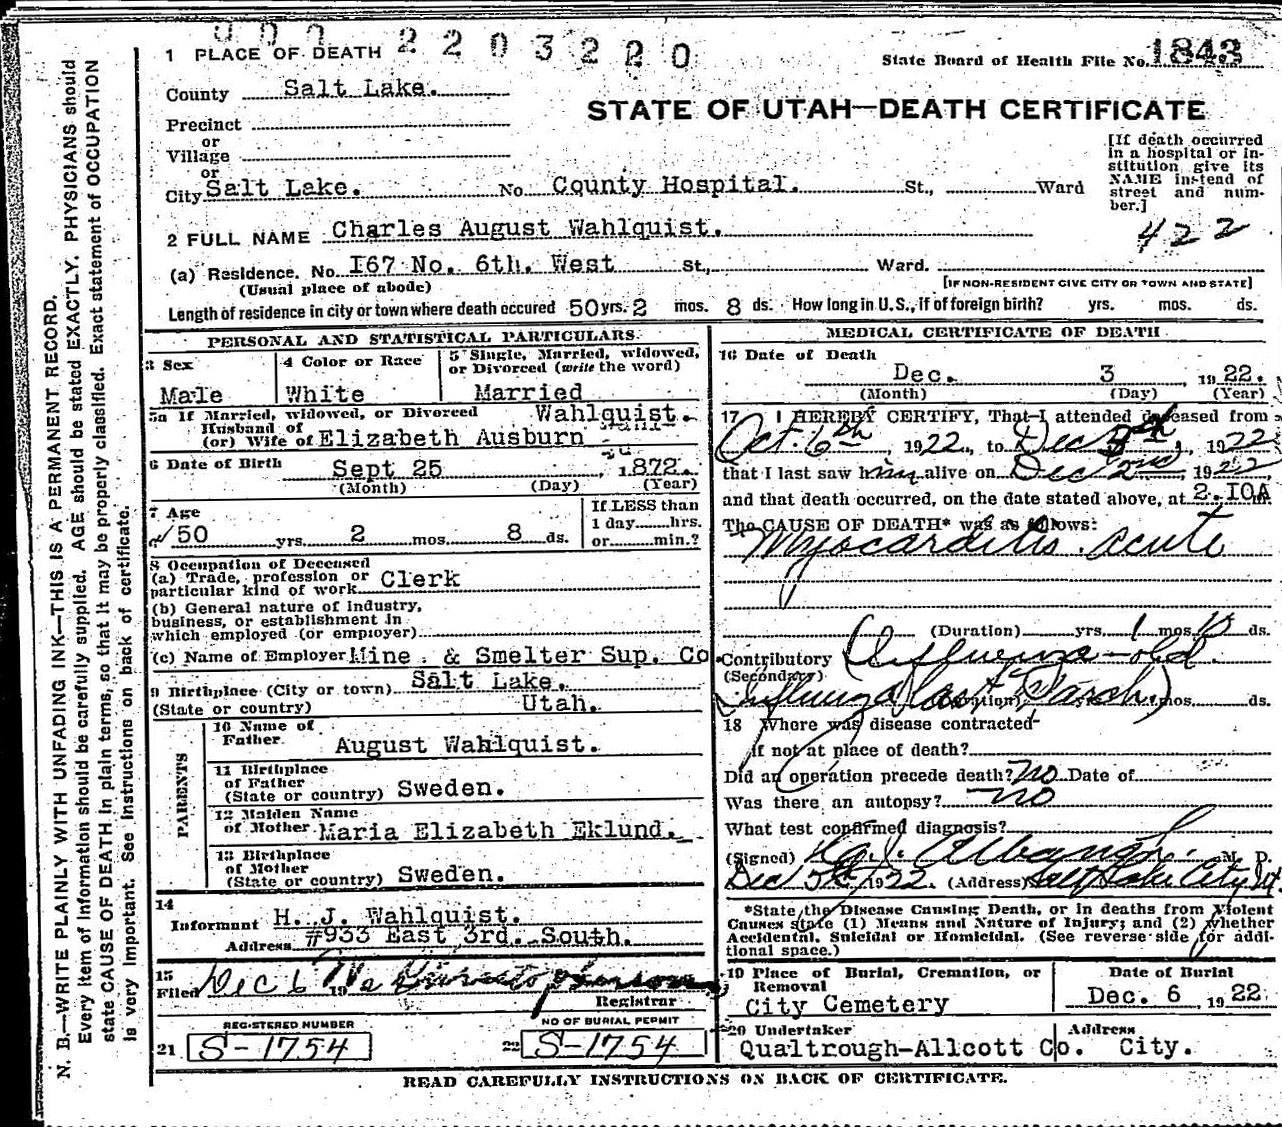 2203220
1 PLACE OF DEATH
State Board of Health File No. 1843
County Salt Lake.
STATE OF UTAH—DEATH CERTIFICATE
Precinct
or
Village
or
City Salt Lake. No. County Hospital. St., Ward
[If death occurred
in a hospital or in-
stitution give its
NAME instead of
street and num-
ber.]
2 FULL NAME Charles August Wahlquist.
422
(a) Residence. No. I67 No. 6th. West St., Ward.
(Usual place of abode)
[IF NON-RESIDENT GIVE CITY OR TOWN AND STATE]
Length of residence in city or town where death occured 50 yrs. 2 mos. 8 ds. How long in U.S., if of foreign birth? yrs. mos. ds.
PERSONAL AND STATISTICAL PARTICULARS.
3 Sex
Male
4 Color or Race
White
5 Single, Married, widowed,
or Divorced (write the word)
Married
5a If Married, widowed, or Divorced Wahlquist.
Husband of
(or) Wife of Elizabeth Ausburn
6 Date of Birth Sept 25 1872.
(Month) (Day) (Year)
7 Age
50 yrs. 2 mos. 8 ds.
If LESS than
1 day hrs.
or min.?
8 Occupation of Deceased
(a) Trade, profession or
particular kind of work Clerk
(b) General nature of Industry,
business, or establishment in
which employed (or employer)
(c) Name of Employer Mine & Smelter Sup. Co.
9 Birthplace (City or town) Salt Lake.
(State or country) Utah.
PARENTS
10 Name of
Father August Wahlquist.
11 Birthplace
of Father
(State or country) Sweden.
12 Maiden Name
of Mother Maria Elizabeth Eklund.
13 Birthplace
of Mother
(State or country) Sweden.
14
Informant H. J. Wahlquist.
Address #933 East 3rd. South.
15
Filed Dec 6 19
Registrar
REGISTERED NUMBER
21 S-1754
NO OF BURIAL PERMIT
22 S-1754
MEDICAL CERTIFICATE OF DEATH
16 Date of Death
Dec. 3 , 1922.
(Month) (Day) (Year)
17 I HEREBY CERTIFY, That I attended deceased from
Oct. 6th 1922, to Dec , 1922
that I last saw him alive on Dec 2nd 1922
and that death occurred, on the date stated above, at 2.10A
The CAUSE OF DEATH* was as follows:
Myocarditis acute
(Duration) yrs. 1 mos. ds.
Contributory (Influenza—old
(Secondary)
Influenza last March) mos. ds.
18 Where was disease contracted
if not at place of death?
Did an operation precede death? no Date of
Was there an autopsy? no
What test confirmed diagnosis?
(Signed) M. D.
Dec 1922. (Address) Salt Lake City Ut.
*State the Disease Causing Death, or in deaths from Violent
Causes state (1) Means and Nature of Injury; and (2) whether
Accidental, Suicidal or Homicidal. (See reverse side for addi-
tional space.)
19 Place of Burial, Cremation, or
Removal
City Cemetery
Date of Burial
Dec. 6 1922
20 Undertaker
Qualtrough-Allcott Co.
Address
City.
READ CAREFULLY INSTRUCTIONS ON BACK OF CERTIFICATE.
N. B.—WRITE PLAINLY WITH UNFADING INK—THIS IS A PERMANENT RECORD.
Every item of information should be carefully supplied. AGE should be stated EXACTLY. PHYSICIANS should
state CAUSE OF DEATH in plain terms, so that it may be properly classified. Exact statement of OCCUPATION
is very important. See instructions on back of certificate.